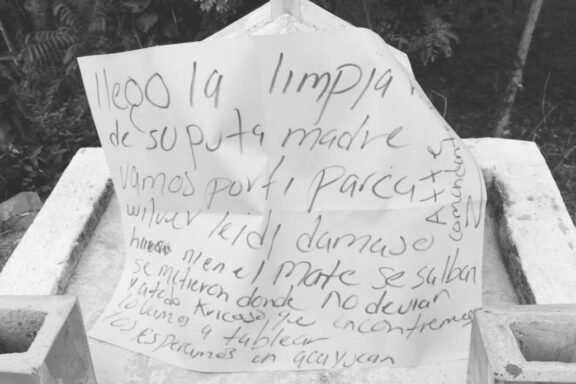 llego la limpia
de su puta madre
vamos por ti parca
wilver leidi damaso
ni en el mate se salban
se metieron donde no devian
y a todo kricoso que encontremos
lo vamos a tablear
los esperamos en acayucan
Atte
comandante